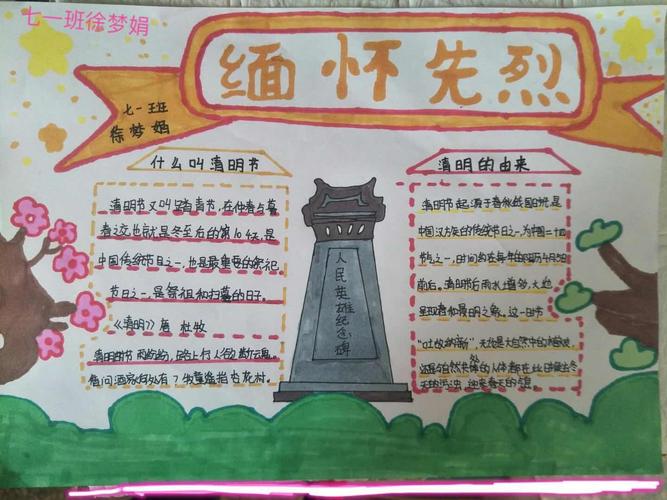 七一班徐梦娟
缅怀先烈
七一班
徐梦娟
什么叫清明节
清明节又叫踏青节，在仲春与暮
春之交，也就是冬至后的第104天，是
中国传统节日之一，也是最重要的祭祀
节日之一，是祭祖和扫墓的日子。
《清明》唐 杜牧
清明时节雨纷纷，路上行人欲断魂。
借问酒家何处有？牧童遥指杏花村。
人民英雄纪念碑
清明的由来
清明节起源于春秋战国时期，是
中国汉族的传统节日之一，为中国二十四
节气之一，时间约在每年的阳历4月5日
前后。清明节后雨水增多，大地
呈现春和景明之象。这一时节
"吐故纳新"，无论是大自然中的植被，
还是与自然共处的人体都在此时
迎来春天的